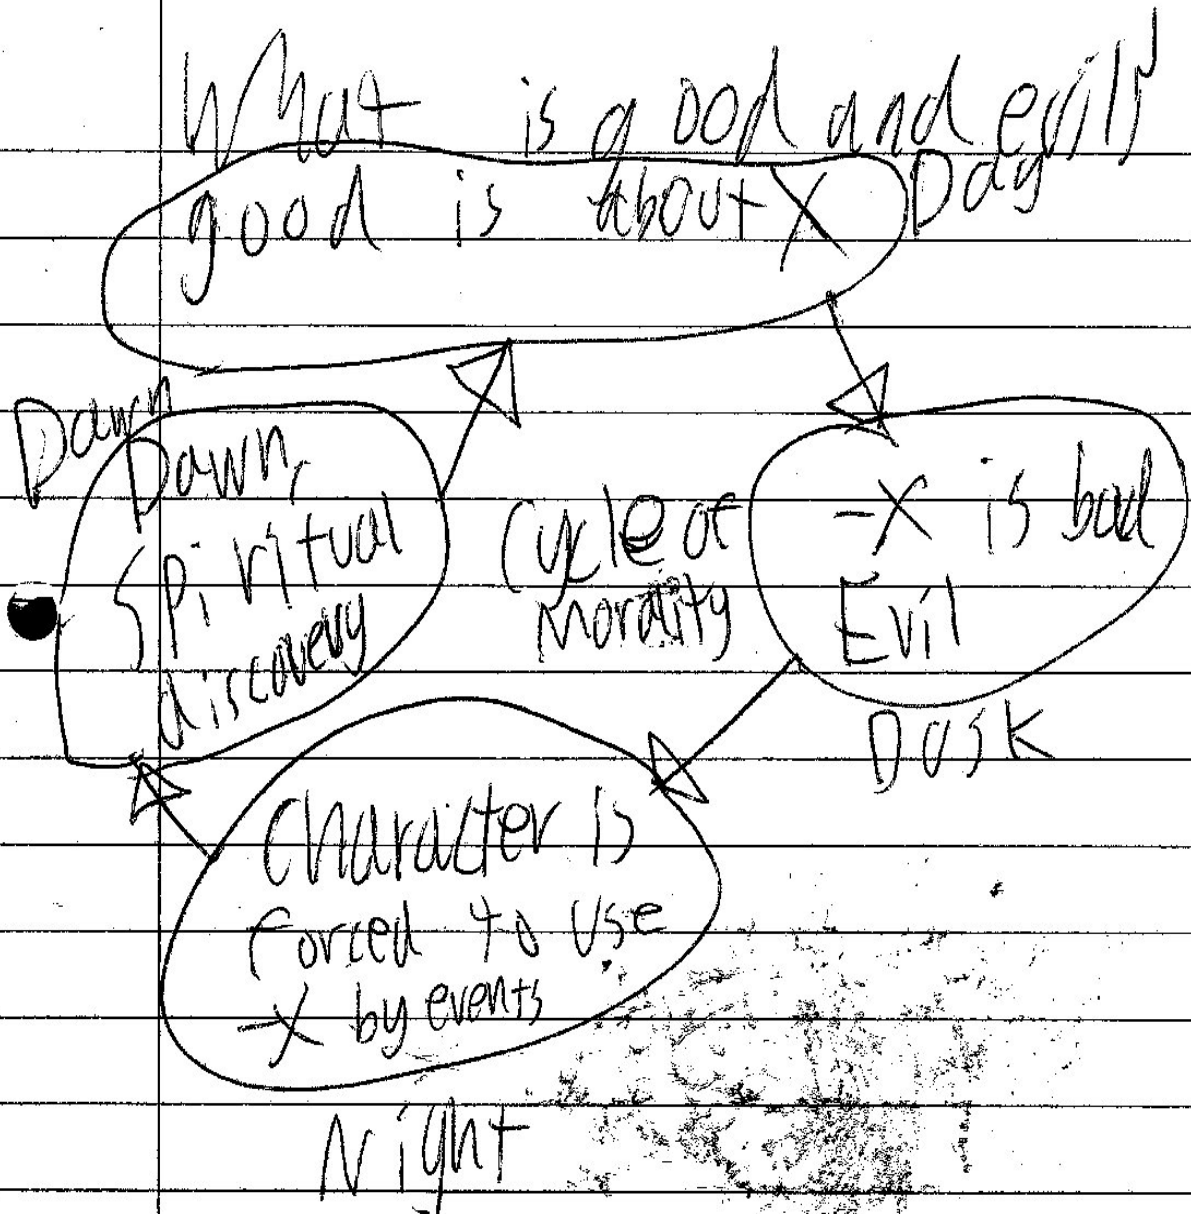 What is good and evil?
good is about X
Day
Dawn
Dawn,
Spiritual
discovery
Cycle of
Morality
-X is bad
Evil
Dusk
Character is
forced to use
-X by events
Night